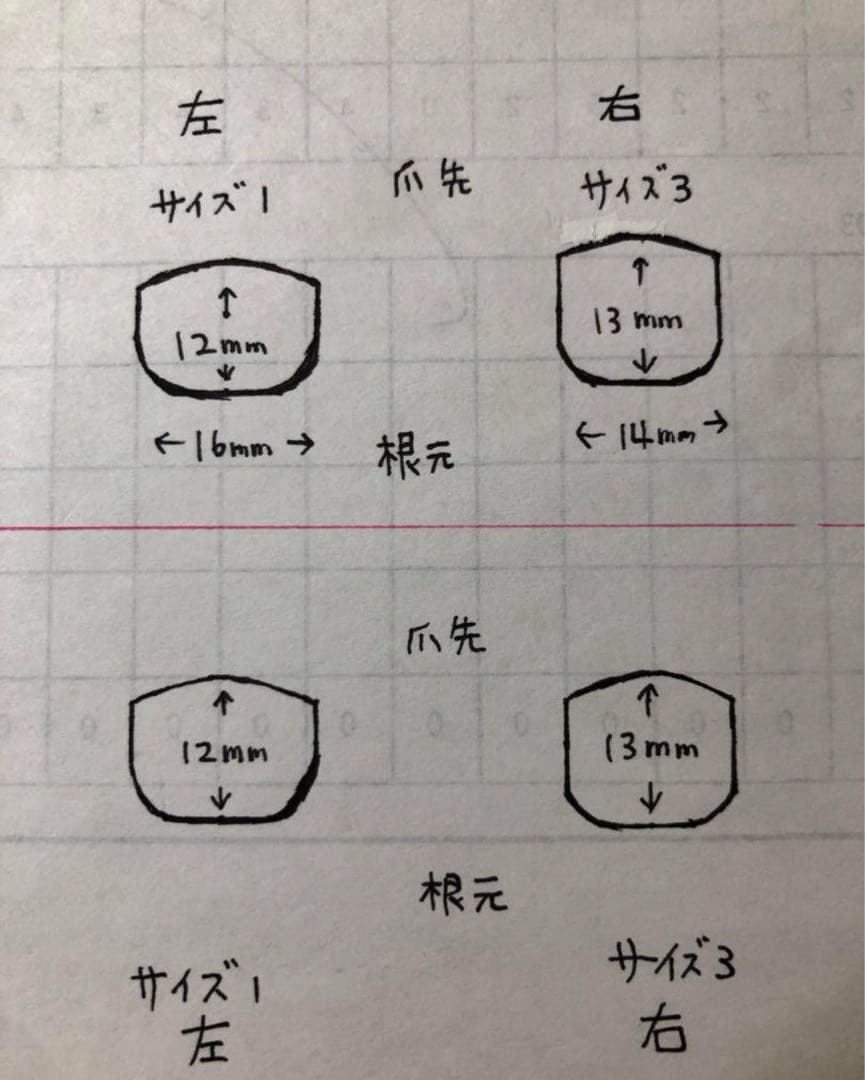 左
右
爪先
サイズ1
サイズ3
12mm
13mm
←16mm→
←14mm→
根元
爪先
12mm
13mm
根元
サイズ1
サイズ3
左
右